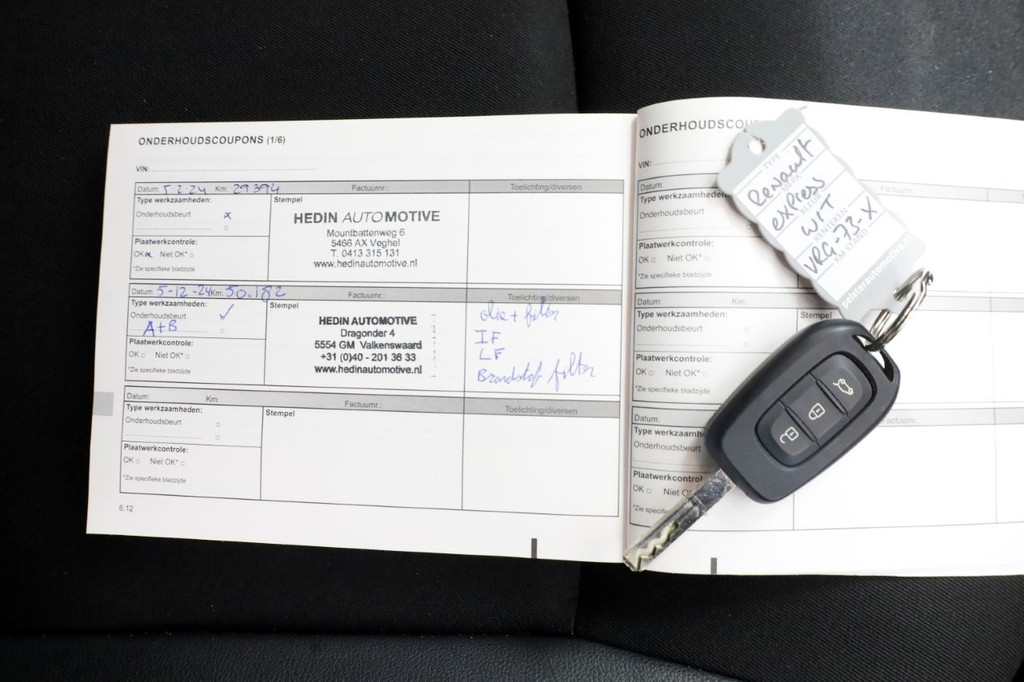 ONDERHOUDSCOUPONS (1/6)
VIN:
Datum: 5 2 24 Km: 29394 Factuurnr.: Toelichting/diversen
Type werkzaamheden:
Stempel
Onderhoudsbeurt x
HEDIN AUTOMOTIVE
Mountbattenweg 6
5466 AX Veghel
T. 0413 315 131
www.hedinautomotive.nl
Plaatwerkcontrole:
OK x Niet OK*
*Zie specifieke bladzijde
Datum: 5-12-24 Km: 50.182 Factuurnr.: Toelichting/diversen
Type werkzaamheden:
Stempel
Onderhoudsbeurt ✓
A+B
HEDIN AUTOMOTIVE
Dragonder 4
5554 GM Valkenswaard
+31 (0)40 - 201 36 33
www.hedinautomotive.nl
olie + filter
IF
LF
Brandstof filter
Plaatwerkcontrole:
OK Niet OK*
*Zie specifieke bladzijde
Datum: Km: Factuurnr.: Toelichting/diversen
Type werkzaamheden:
Stempel
Onderhoudsbeurt
Plaatwerkcontrole:
OK Niet OK*
*Zie specifieke bladzijde
6.12
ONDERHOUDSCOU
VIN:
Datum: Factuurnr.:
Type werkzaamh
Onderhoudsbeurt
Plaatwerkcontrole:
OK Niet OK*
*Zie specifieke bladzijde
Datum: Km:
Type werkzaamheden:
Stempel
Onderhoudsbeurt
Plaatwerkcontrole:
OK Niet OK*
*Zie specifieke bladzijde
Datum:
Type werkzaamh
Onderhoudsbeurt
Plaatwerkcontrole:
OK Niet O
*Zie specifieke
TYPE
Renault
MERK
express
KLEUR
WIT
KENTEKEN
VRG-73-X
KM.STAND
peisterautomotive.nl